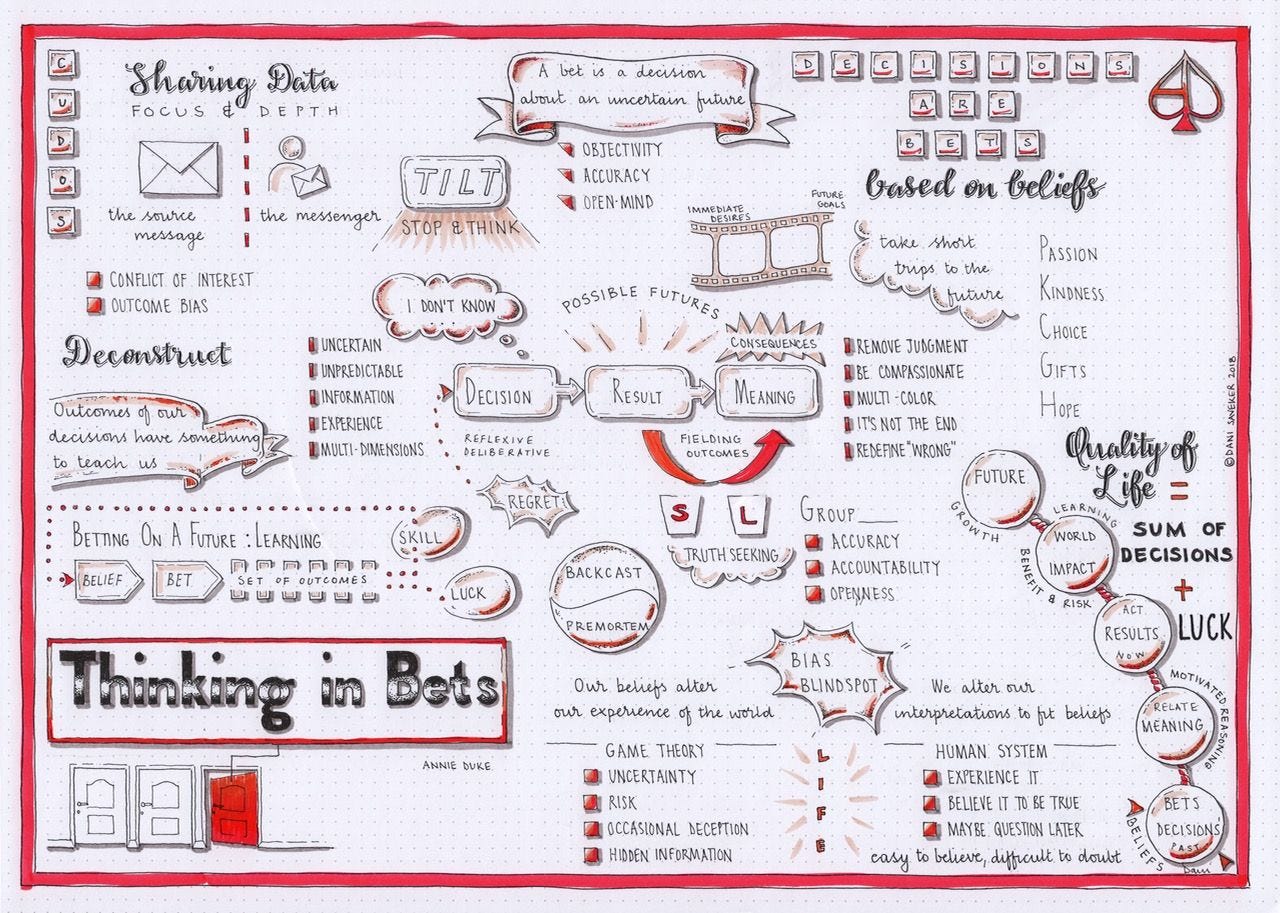 CUDOS
Sharing Data
FOCUS & DEPTH
the source
message
the messenger
CONFLICT OF INTEREST
OUTCOME BIAS
TILT
STOP & THINK
A bet is a decision
about an uncertain future
OBJECTIVITY
ACCURACY
OPEN-MIND
DECISIONS
ARE
BETS
based on beliefs
IMMEDIATE
DESIRES
FUTURE
GOALS
take short
trips to the
future
PASSION
KINDNESS
CHOICE
GIFTS
HOPE
Deconstruct
Outcomes of our
decisions have something
to teach us
UNCERTAIN
UNPREDICTABLE
INFORMATION
EXPERIENCE
MULTI-DIMENSIONS
I DON'T KNOW
POSSIBLE FUTURES
CONSEQUENCES
DECISION
RESULT
MEANING
REFLEXIVE
DELIBERATIVE
FIELDING
OUTCOMES
REMOVE JUDGMENT
BE COMPASSIONATE
MULTI-COLOR
IT'S NOT THE END
REDEFINE "WRONG"
REGRET
S L
TRUTH SEEKING
GROUP
ACCURACY
ACCOUNTABILITY
OPENNESS
BETTING ON A FUTURE : LEARNING
BELIEF
BET
SET OF OUTCOMES
SKILL
LUCK
BACKCAST
PREMORTEM
Quality of
Life =
SUM OF
DECISIONS
+
LUCK
FUTURE
GROWTH
LEARNING
WORLD
IMPACT
BENEFIT & RISK
ACT
RESULTS
NOW
MOTIVATED REASONING
RELATE
MEANING
BETS
DECISIONS
PAST
BELIEFS
Dani
©DANI SAVEKER 2018
Thinking in Bets
ANNIE DUKE
BIAS
BLINDSPOT
Our beliefs alter
our experience of the world
We alter our
interpretations to fit beliefs
GAME THEORY
UNCERTAINTY
RISK
OCCASIONAL DECEPTION
HIDDEN INFORMATION
LIFE
HUMAN SYSTEM
EXPERIENCE IT
BELIEVE IT TO BE TRUE
MAYBE QUESTION LATER
easy to believe, difficult to doubt